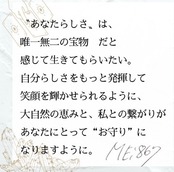 〝あなたらしさ〟は、
唯一無二の宝物　だと
感じて生きてもらいたい。
自分らしさをもっと発揮して
笑顔を輝かせられるように、
大自然の恵みと、私との繋がりが
あなたにとって“お守り”に
なりますように。